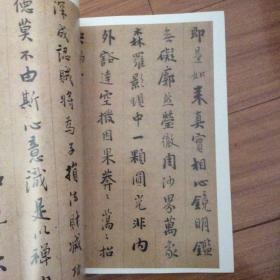 即是如来真實相心鏡明鑑
無礙廓然瑩徹周沙界萬象
森羅影現中一顆圓光非內
外豁達空撥因果莽〻蕩〻招
深成認賊將為子損法財滅功
德莫不由斯心意識是以禪